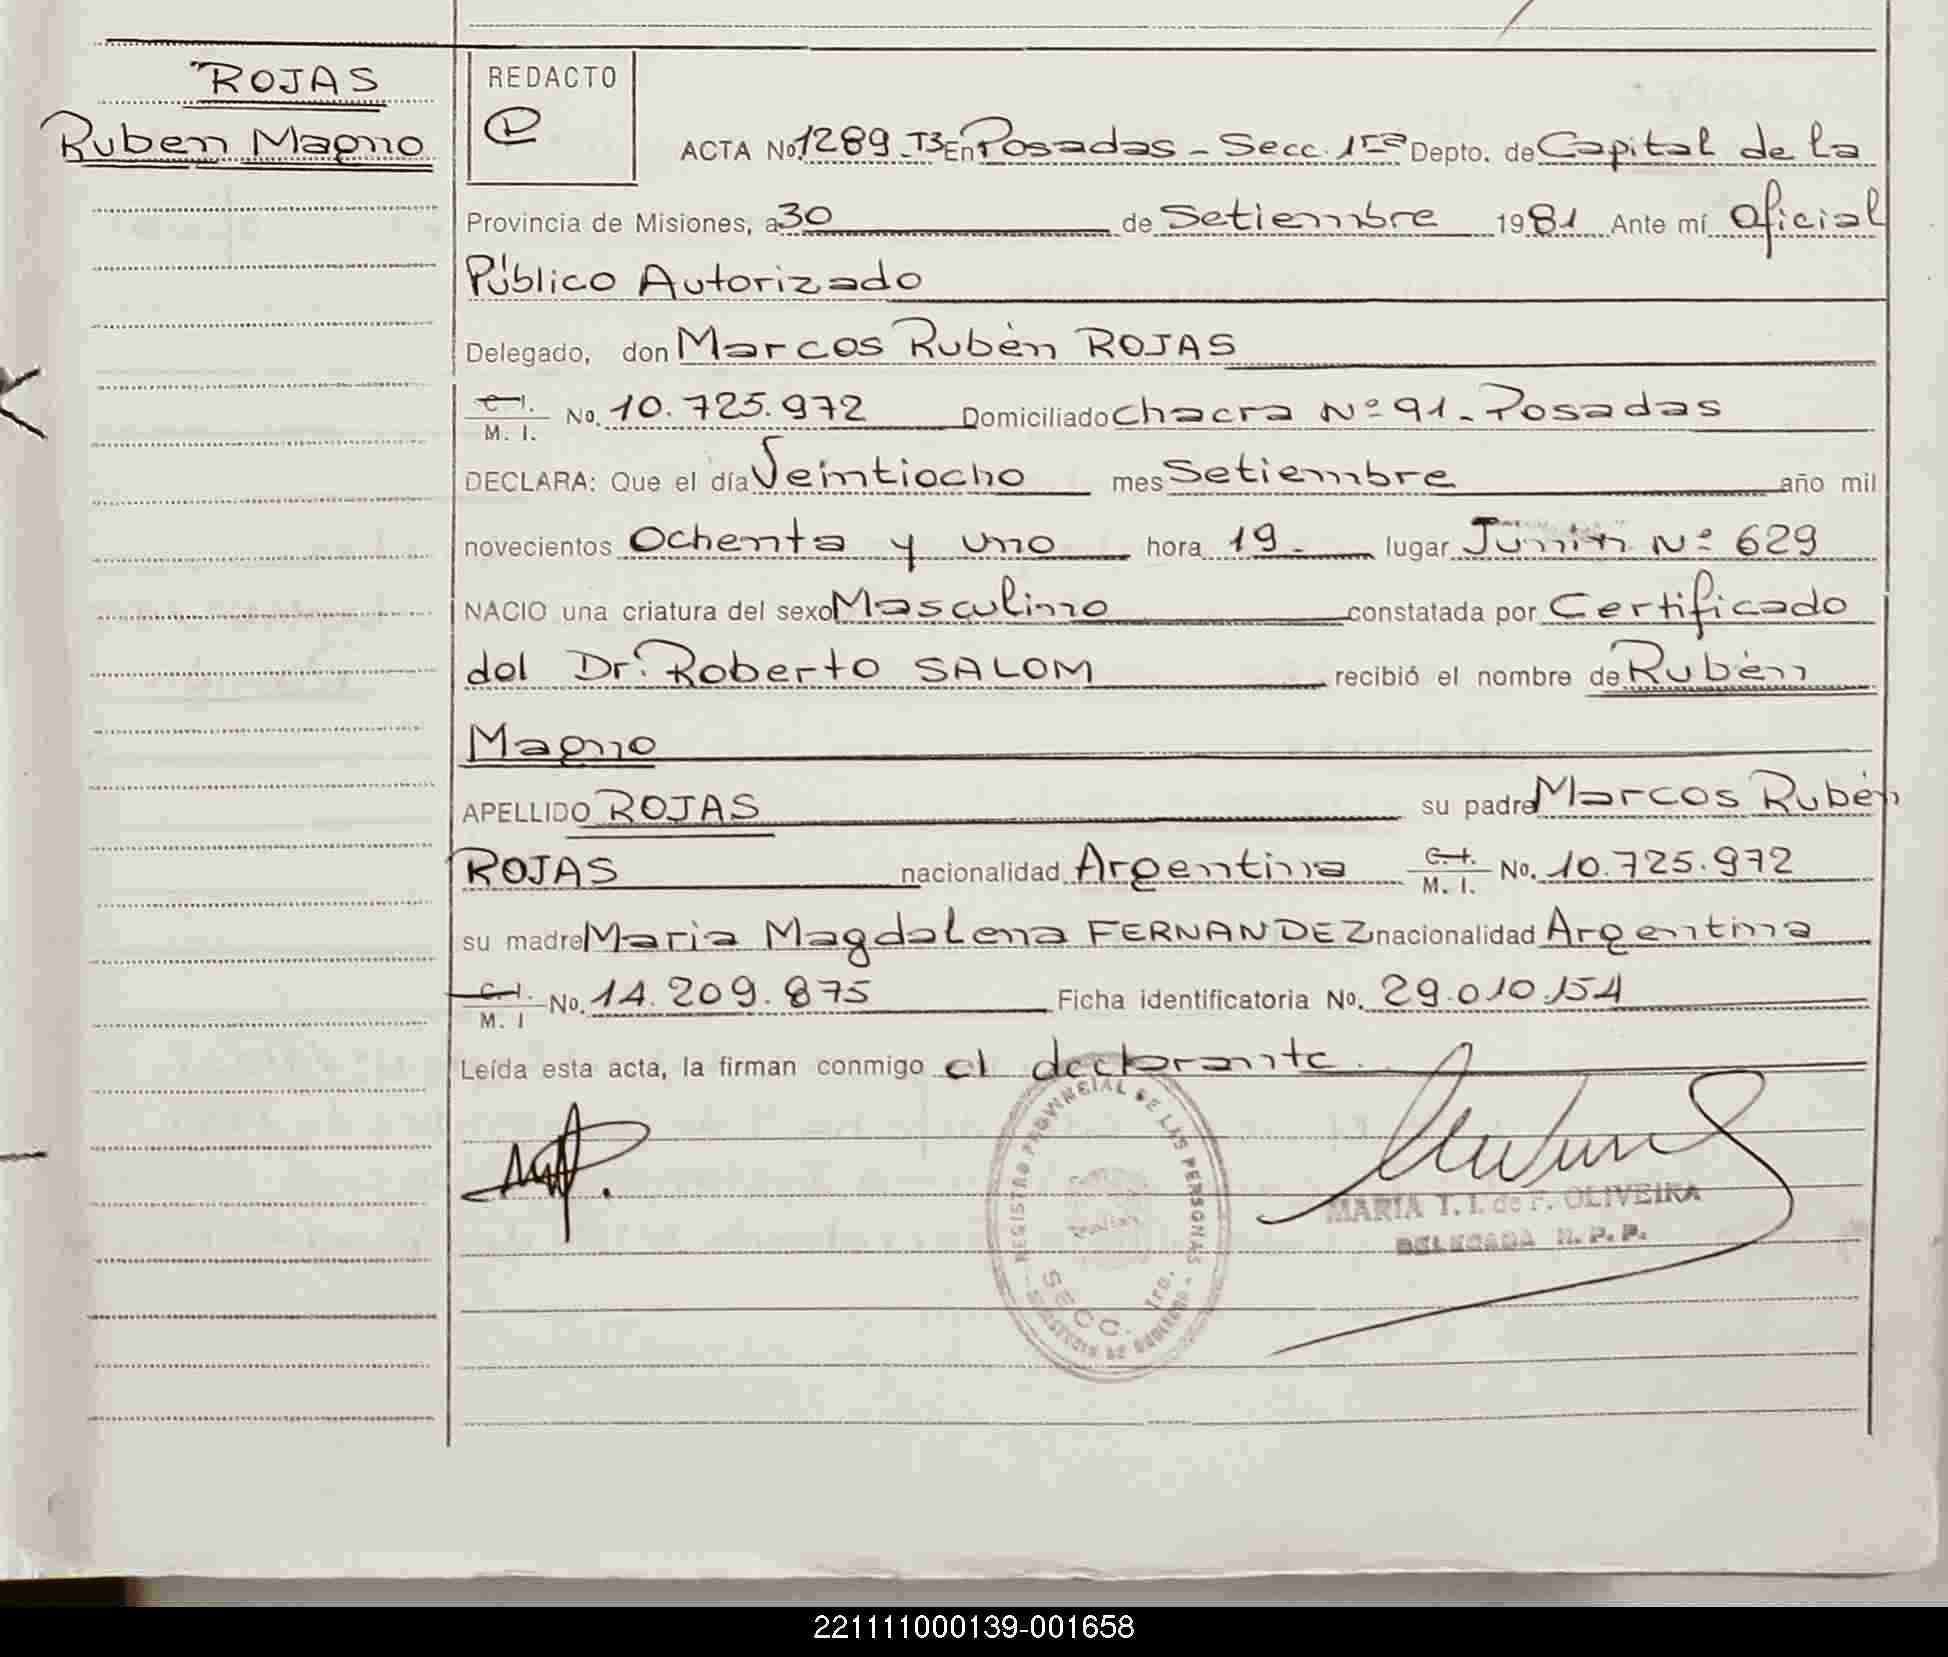 ROJAS
Ruben Magno
REDACTO
ACTA No. 1289 T3 En Posadas - Secc. 1ra Depto. de Capital de la
Provincia de Misiones, a 30 de Setiembre 1981 Ante mí Oficial
Público Autorizado
Delegado, don Marcos Rubén ROJAS
C. I.
M. I. No. 10.725.972 Domiciliado Chacra Nº 91 - Posadas
DECLARA: Que el día Veintiocho mes Setiembre año mil
novecientos Ochenta y uno hora 19 lugar Junin Nº 629
NACIO una criatura del sexo Masculino constatada por Certificado
del Dr. Roberto SALOM recibió el nombre de Rubén
Magno
APELLIDO ROJAS su padre Marcos Rubén
ROJAS nacionalidad Argentina C. I. M. I. No. 10.725.972
su madre Maria Magdalena FERNANDEZ nacionalidad Argentina
C. I. M. I No. 14.209.875 Ficha identificatoria No. 29.010.154
Leída esta acta, la firman conmigo el declarante.
REGISTRO PROVINCIAL DE LAS PERSONAS
SECC. 1ra.
MARIA T. I. de F. OLIVEIRA
DELEGADA R. P. P.
221111000139-001658